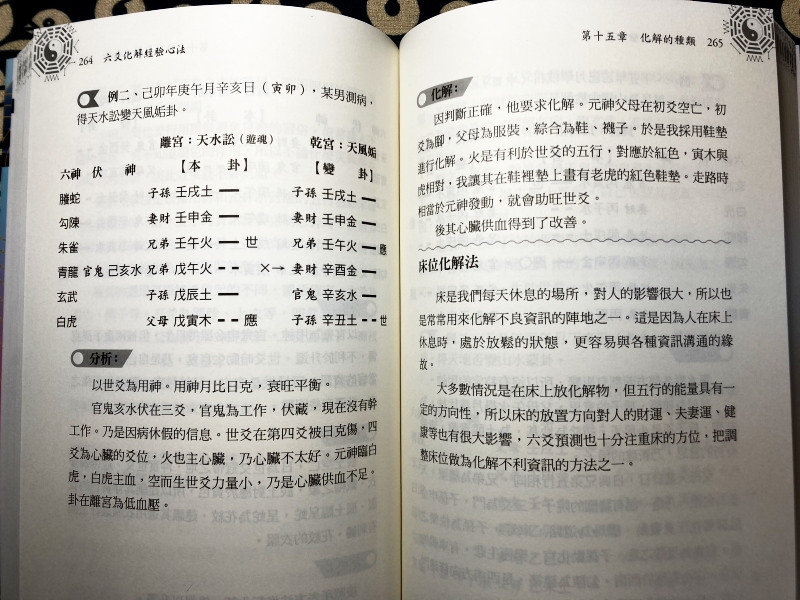 264 六爻化解經驗心法
例二、己卯年庚午月辛亥日（寅卯），某男測病，
得天水訟變天風姤卦。
離宮：天水訟（遊魂） 乾宮：天風姤
六神 伏 神 【本 卦】 【變 卦】
螣蛇 子孫 壬戌土 子孫 壬戌土
勾陳 妻財 壬申金 妻財 壬申金
朱雀 兄弟 壬午火 世 兄弟 壬午火 應
青龍 官鬼 己亥水 兄弟 戊午火 ×→ 妻財 辛酉金
玄武 子孫 戊辰土 官鬼 辛亥水
白虎 父母 戊寅木 應 子孫 辛丑土 世
分析：
以世爻為用神。用神月比日克，衰旺平衡。
官鬼亥水伏在三爻，官鬼為工作，伏藏，現在沒有幹
工作。乃是因病休假的信息。世爻在第四爻被日克傷，四
爻為心臟的爻位，火也主心臟，乃心臟不太好。元神臨白
虎，白虎主血，空而生世爻力量小，乃是心臟供血不足。
卦在離宮為低血壓。
第十五章 化解的種類 265
化解：
因判斷正確，他要求化解。元神父母在初爻空亡，初
爻為腳，父母為服裝，綜合為鞋、襪子。於是我採用鞋墊
進行化解。火是有利於世爻的五行，對應於紅色，寅木與
虎相對，我讓其在鞋裡墊上畫有老虎的紅色鞋墊。走路時
相當於元神發動，就會助旺世爻。
後其心臟供血得到了改善。
床位化解法
床是我們每天休息的場所，對人的影響很大，所以也
是常常用來化解不良資訊的陣地之一。這是因為人在床上
休息時，處於放鬆的狀態，更容易與各種資訊溝通的緣
故。
大多數情況是在床上放化解物，但五行的能量具有一
定的方向性，所以床的放置方向對人的財運、夫妻運、健
康等也有很大影響，六爻預測也十分注重床的方位，把調
整床位做為化解不利資訊的方法之一。